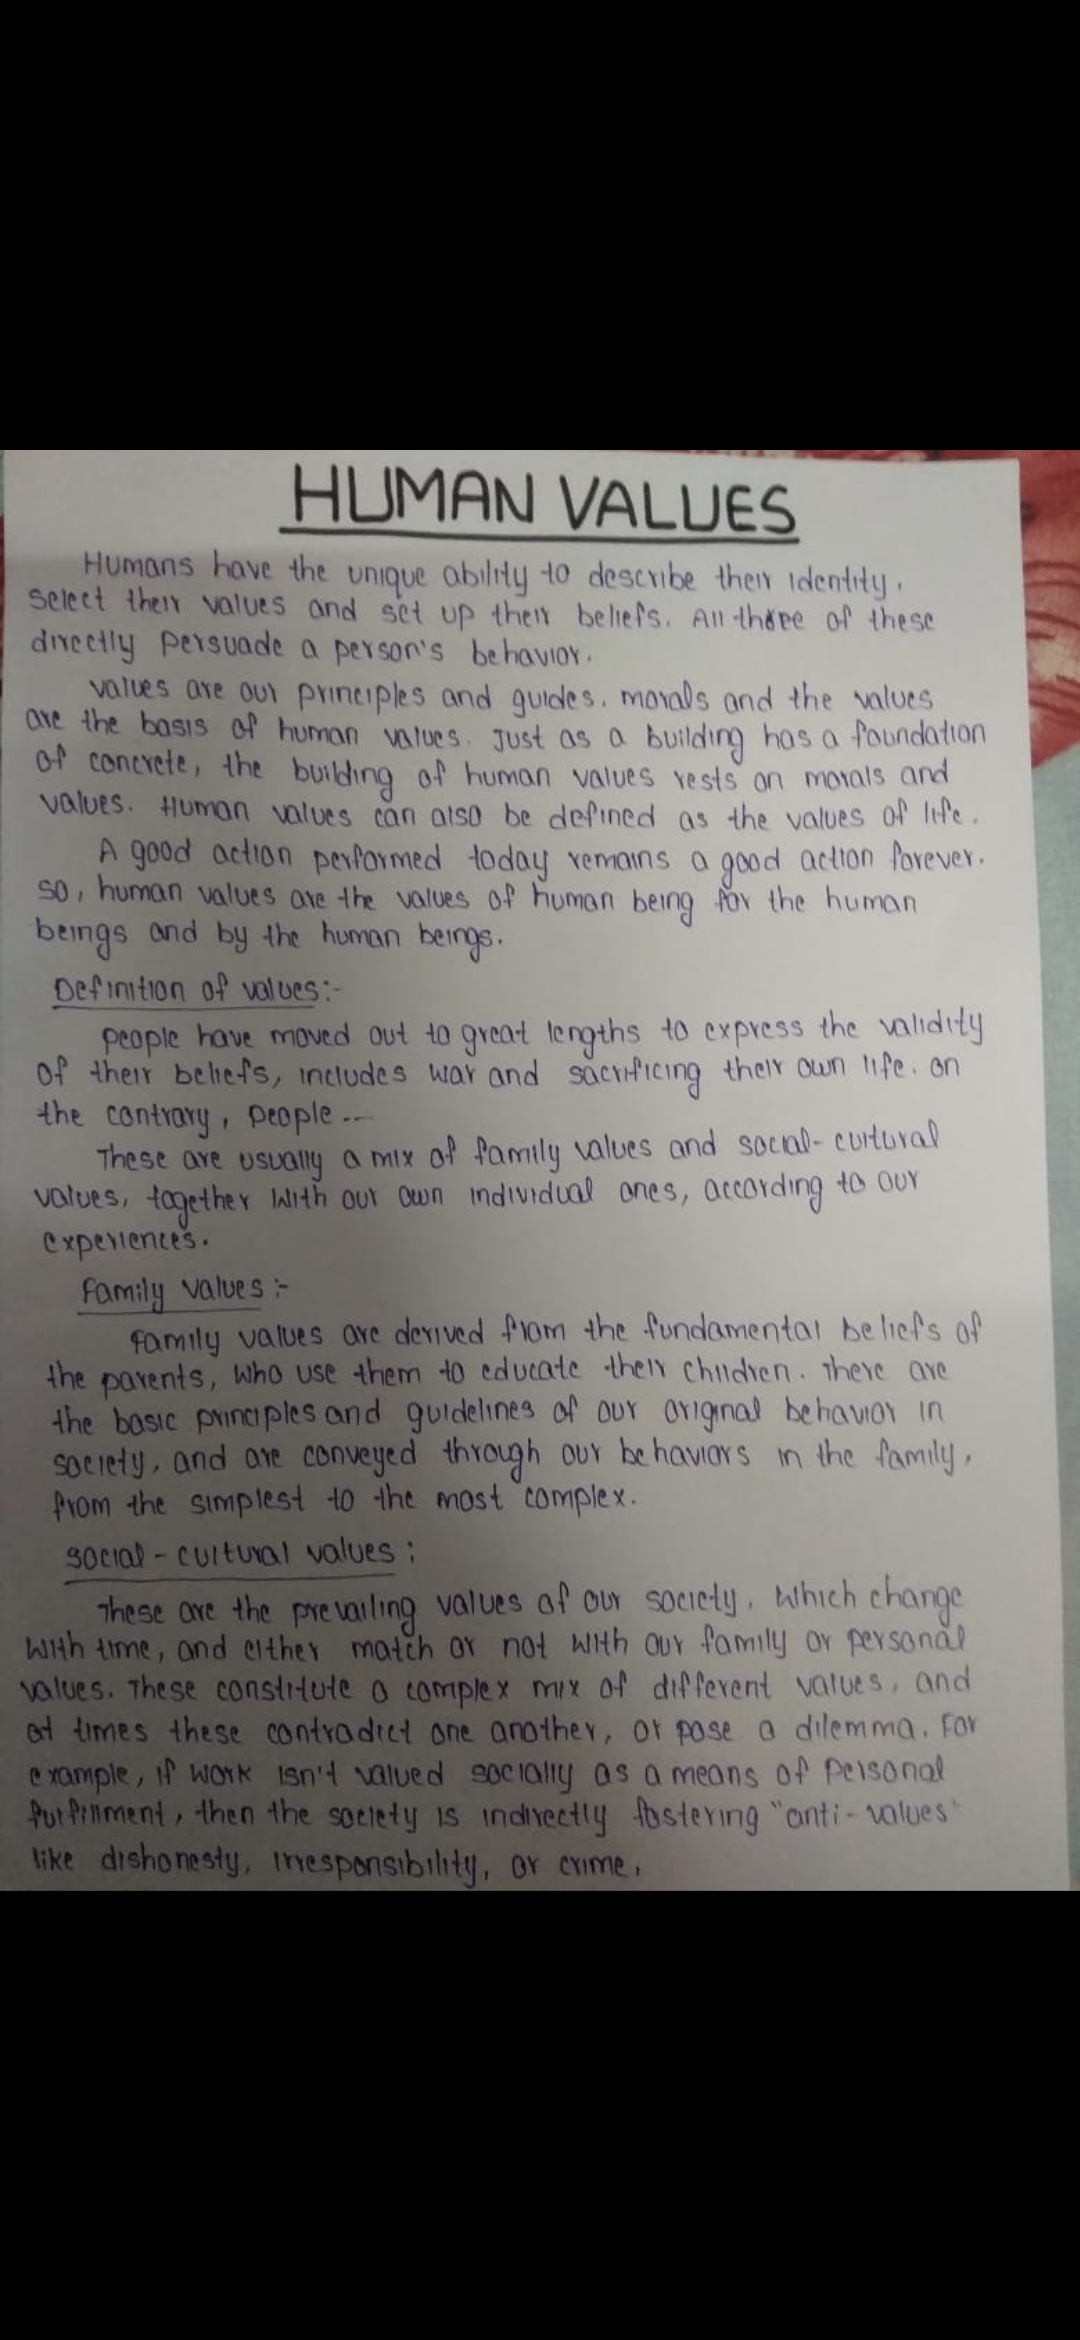 HUMAN VALUES
Humans have the unique ability to describe their identity,
select their values and set up their beliefs. All three of these
directly persuade a person's behavior.
values are our principles and guides. morals and the values
are the basis of human values. Just as a building has a foundation
of concrete, the building of human values rests on morals and
values. Human values can also be defined as the values of life.
A good action performed today remains a good action forever.
so, human values are the values of human being for the human
beings and by the human beings.
Definition of values:-
people have moved out to great lengths to express the validity
of their beliefs, includes war and sacrificing their own life. on
the contrary, people ---
These are usually a mix of family values and social-cultural
values, together with our own individual ones, according to our
experiences.
Family values :-
Family values are derived from the fundamental beliefs of
the parents, who use them to educate their children. There are
the basic principles and guidelines of our original behavior in
society, and are conveyed through our behaviors in the family,
from the simplest to the most complex.
social - cultural values :
These are the prevailing values of our society, which change
with time, and either match or not with our family or personal
values. These constitute a complex mix of different values, and
at times these contradict one another, or pose a dilemma. For
example, if work isn't valued socially as a means of personal
fulfillment, then the society is indirectly fostering "anti-values"
like dishonesty, irresponsibility, or crime.